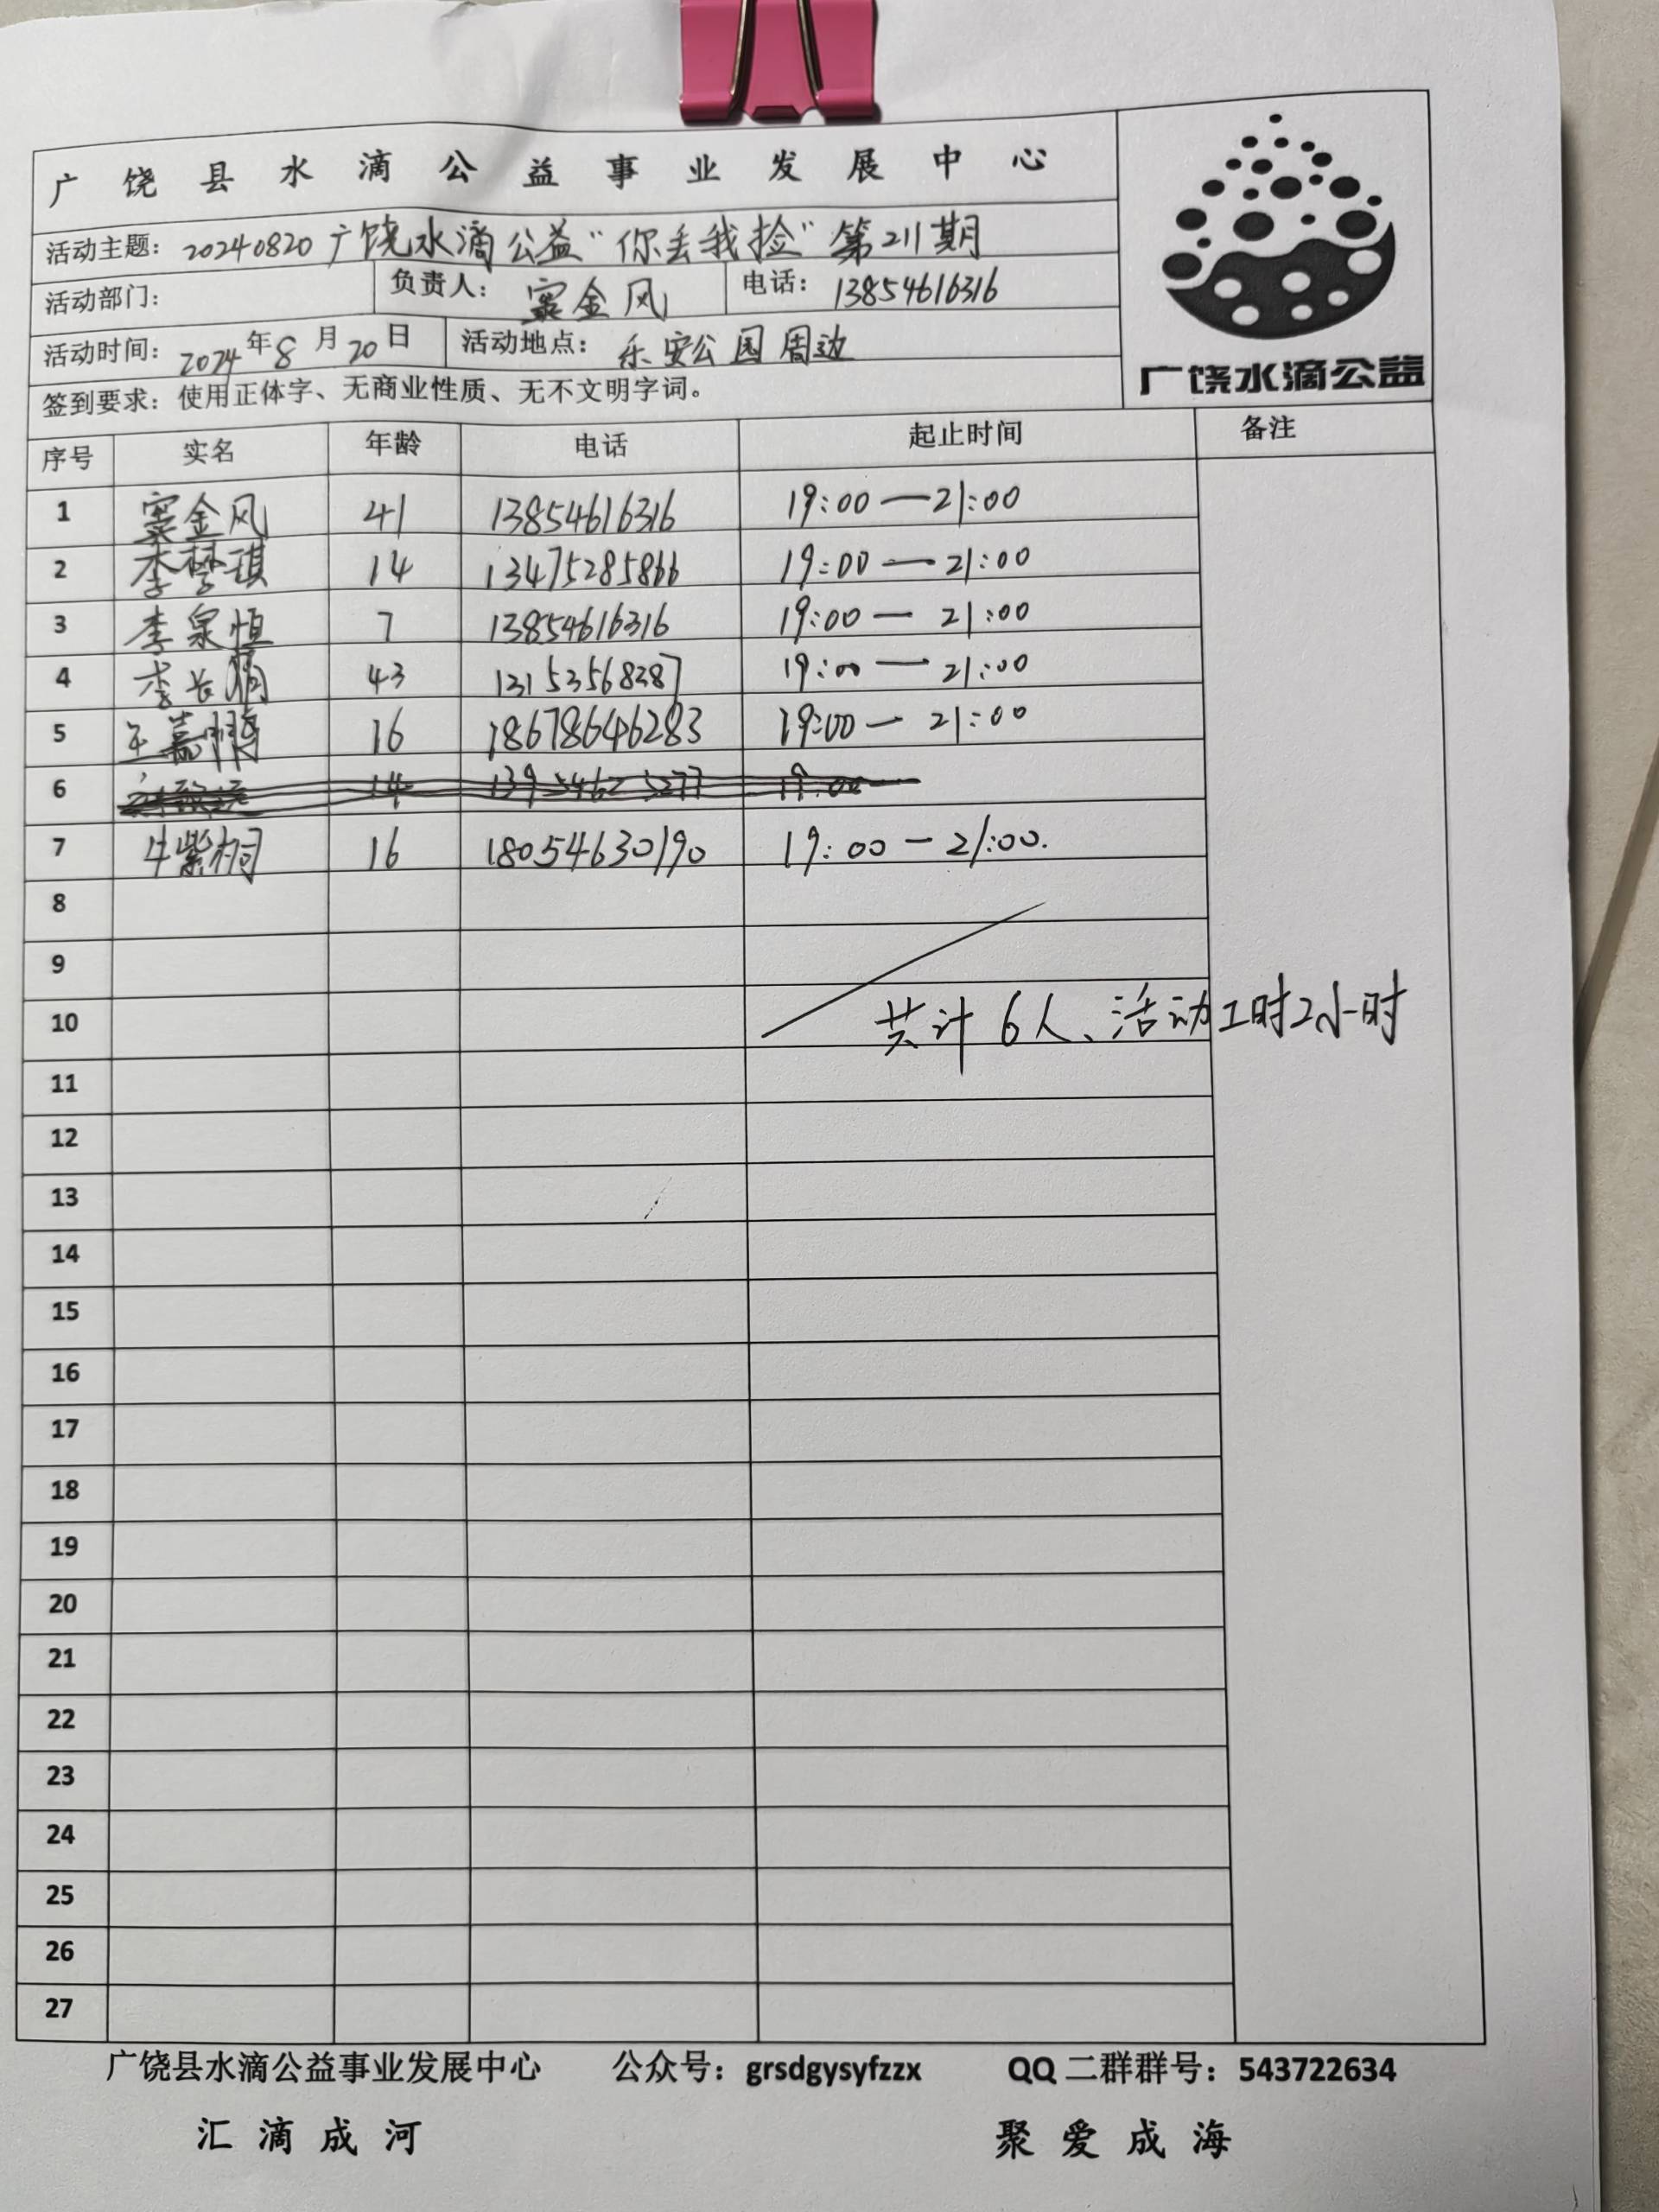 广饶县水滴公益事业发展中心
活动主题：20240820广饶水滴公益“你丢我捡”第211期
活动部门： 负责人：窦金风 电话：13854616316
活动时间：2024年8月20日 活动地点：乐安公园周边
签到要求：使用正体字、无商业性质、无不文明字词。
广饶水滴公益
序号 实名 年龄 电话 起止时间 备注
1 窦金风 41 13854616316 19:00—21:00
2 李梦琪 14 13475285866 19:00—21:00
3 李泉恒 7 13854616316 19:00—21:00
4 李长 43 13153568387 19:00—21:00
5 王嘉 16 18678646283 19:00—21:00
6 14 19:00—
7 牛紫桐 16 18054630190 19:00—21:00.
8
9
10 共计6人、活动工时2小时
11
12
13
14
15
16
17
18
19
20
21
22
23
24
25
26
27
广饶县水滴公益事业发展中心 公众号：grsdgysyfzzx QQ二群群号：543722634
汇滴成河 聚爱成海